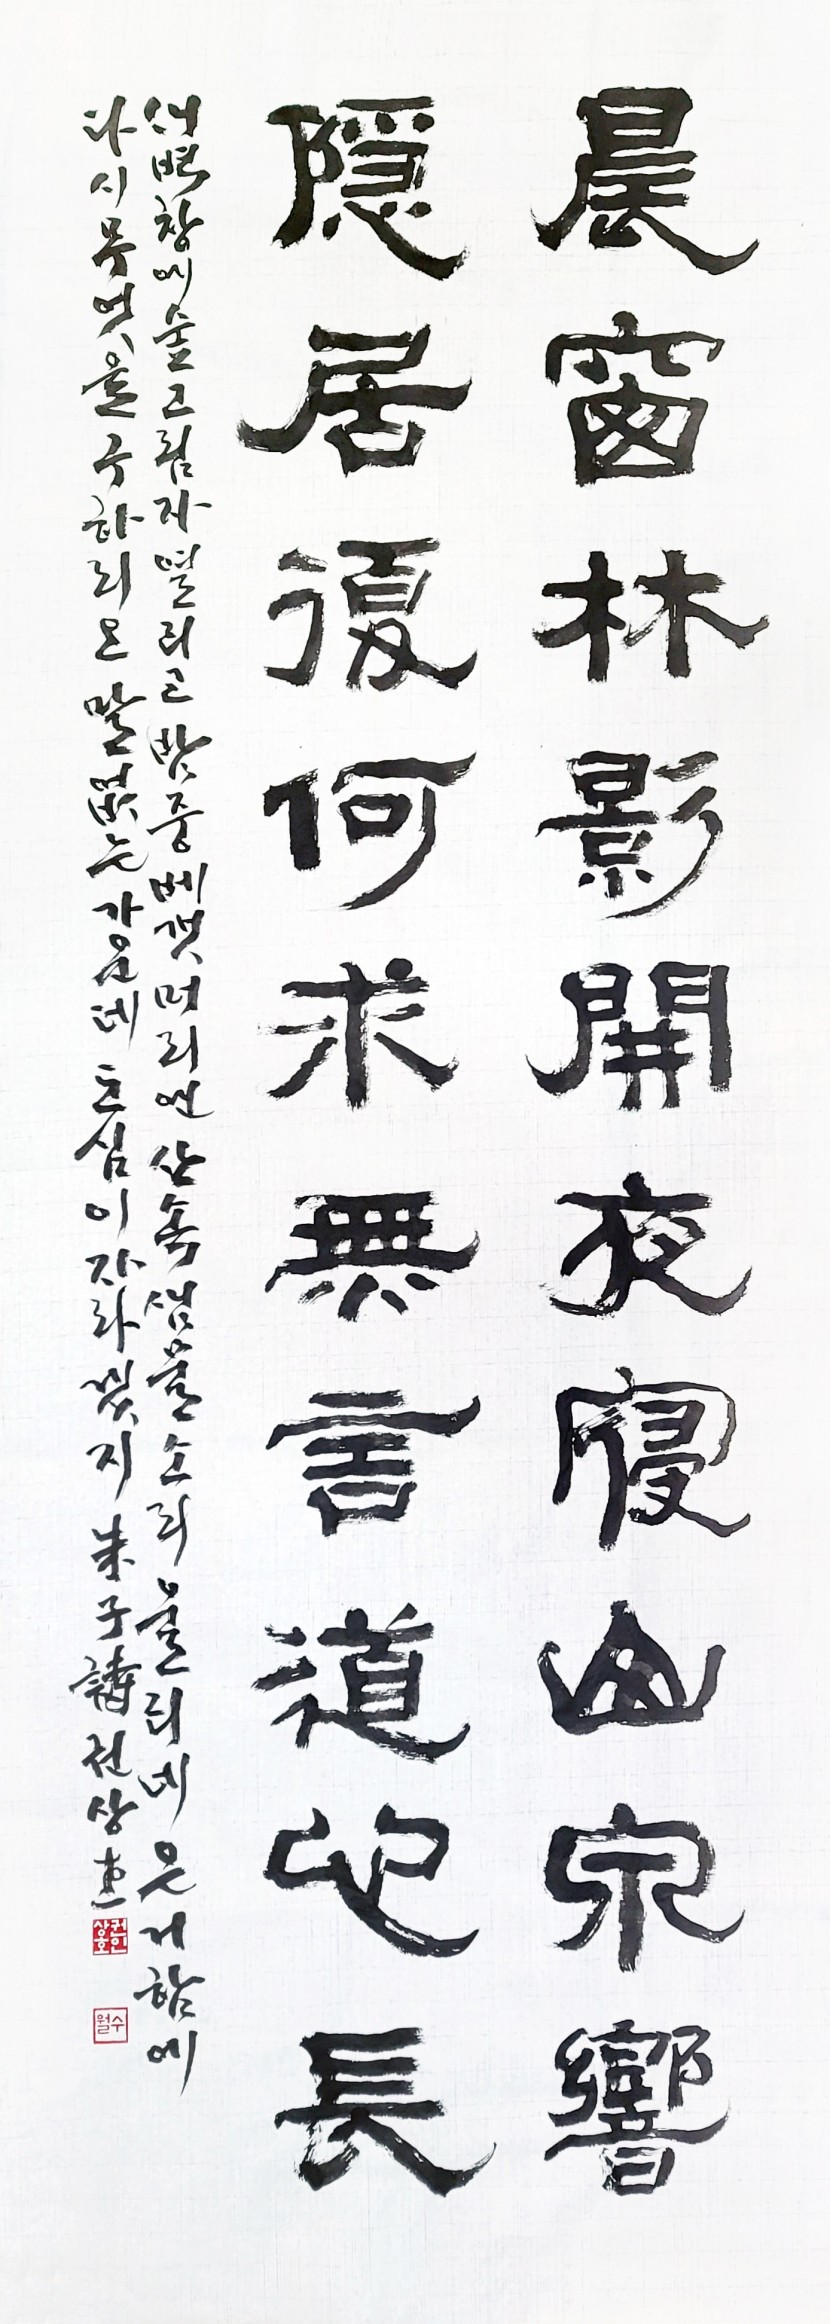 晨窗林影開夜寢山泉響
隱居復何求無言道心長
새벽창에 숲그림자 열리고 밤중 베갯머리엔 산속샘물소리 울리네 은거함에
다시 무엇을 구하리오 말없는 가운데 도심이 자라겠지 朱子詩 권상호
권인
상호
수월